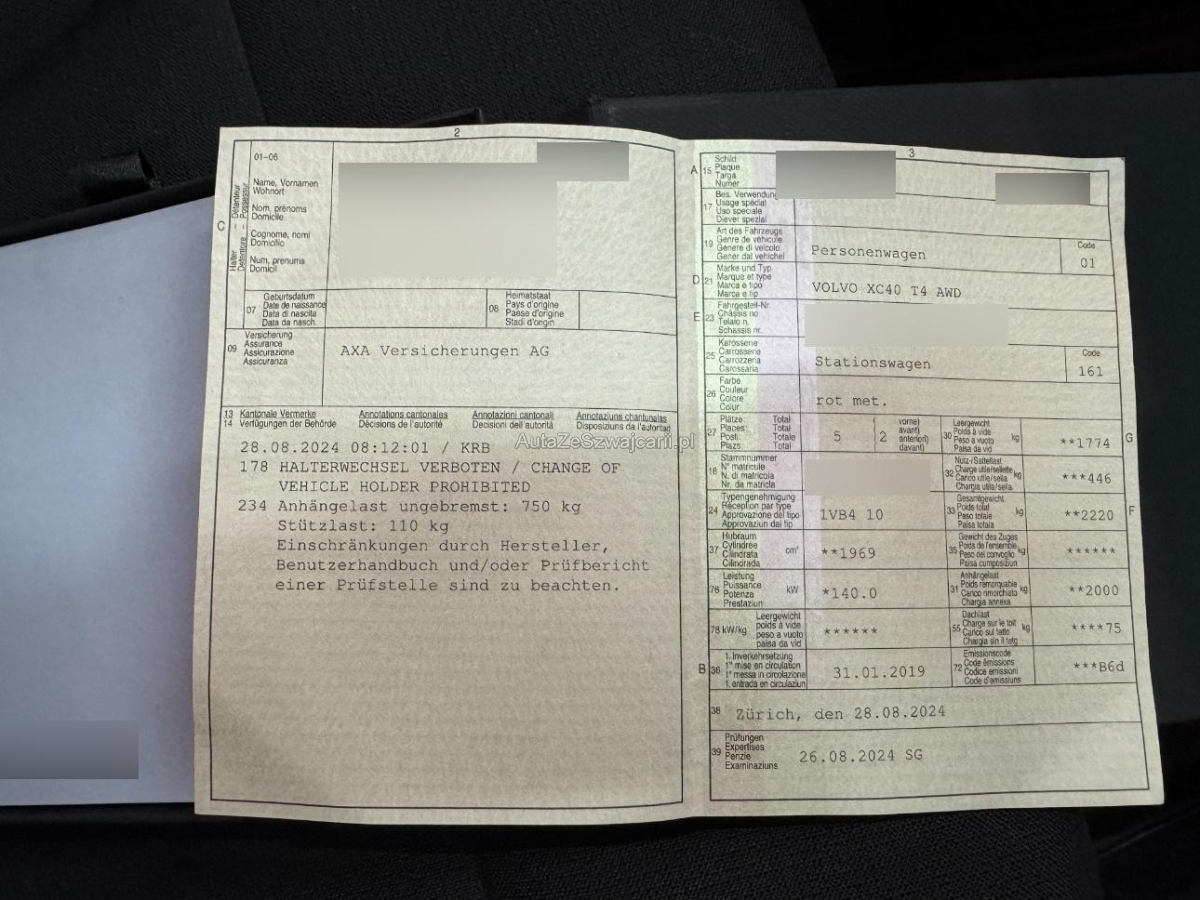 2
01-06
Name, Vornamen
Wohnort
Nom, prénoms
Domicile
Cognome, nomi
Domicilio
Num, prenums
Domicil
C
Halter – Détenteur
Detentore – Possessur
07
Geburtsdatum
Date de naissance
Data di nascita
Data da nasch.
08
Heimatstaat
Pays d'origine
Paese d'origine
Stadi d'origin
09
Versicherung
Assurance
Assicurazione
Assicuranza
AXA Versicherungen AG
13 Kantonale Vermerke Annotations cantonales Annotazioni cantonali Annotaziuns chantunalas
14 Verfügungen der Behörde Décisions de l'autorité Decisioni dell'autorità Disposiziuns da l'autoritad
28.08.2024 08:12:01 / KRB
178 HALTERWECHSEL VERBOTEN / CHANGE OF
VEHICLE HOLDER PROHIBITED
234 Anhängelast ungebremst: 750 kg
Stützlast: 110 kg
Einschränkungen durch Hersteller,
Benutzerhandbuch und/oder Prüfbericht
einer Prüfstelle sind zu beachten.
AutaZeSzwajcarii.pl
3
A
15
Schild
Plaque
Targa
Numer
17
Bes. Verwendung
Usage spécial
Uso speciale
Diever spezial
19
Art des Fahrzeugs
Genre de véhicule
Genere di veicolo
Gener dal vehichel
Personenwagen
Code
01
D
21
Marke und Typ
Marque et type
Marca e tipo
Marca e tip
VOLVO XC40 T4 AWD
E
23
Fahrgestell-Nr.
Châssis no
Telaio n.
Schassis nr.
25
Karosserie
Carrosserie
Carrozzeria
Carossaria
Stationswagen
Code
161
26
Farbe
Couleur
Colore
Colur
rot met.
27
Plätze: Total
Places: Total
Posti: Totale
Plazs: Total
5
2
vorne)
avant)
anteriori)
davant)
30
Leergewicht
Poids à vide
Peso a vuoto
Paisa da vid
kg
**1774
G
18
Stammnummer
N° matricule
N. di matricola
Nr. da matricla
32
Nutz-/Sattellast
Charge utile/sellette
Carico utile/sella
Chargia utila/sella
kg
***446
24
Typengenehmigung
Réception par type
Approvazione del tipo
Approvaziun dal tip
1VB4 10
33
Gesamtgewicht
Poids total
Peso totale
Paisa totala
kg
**2220
F
37
Hubraum
Cylindrée
Cilindrata
Cilindrada
cm³
**1969
35
Gewicht des Zuges
Poids de l'ensemble
Peso del convoglio
Paisa cumposiziun
kg
******
76
Leistung
Puissance
Potenza
Prestaziun
kW
*140.0
31
Anhängelast
Poids remorquable
Carico rimorchiato
Chargia annexa
kg
**2000
78 kW/kg
Leergewicht
poids à vide
peso a vuoto
paisa da vid
******
55
Dachlast
Charge sur le toit
Carico sul tetto
Chargia sin il tetg
kg
****75
B
36
1. Inverkehrsetzung
1re mise en circulation
1a messa in circolazione
1. entrada en circulaziun
31.01.2019
72
Emissionscode
Code émissions
Codice emissioni
Code d'emissiuns
***B6d
38
Zürich, den 28.08.2024
39
Prüfungen
Expertises
Perizie
Examinaziuns
26.08.2024 SG